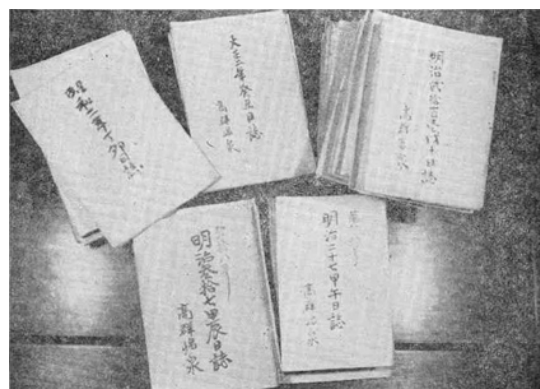 昭和二年丁卯日誌
大正二年癸丑日誌
高群
明治弐拾
戊子日誌
高群
明治参拾七甲辰日誌
高群
明治二十七甲午日誌
高群